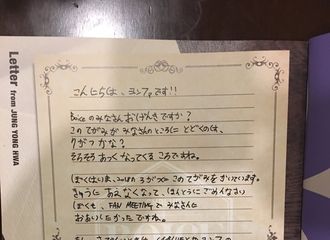 Letter from JUNG YONG HWA
こんにちは、ヨンファです!!
Boiceのみなさん おげんきですか?
このてがみが みなさんのところに とどくのは、
7がつかな?
そろそろあつくなってくるころですね。
(ぼくはいま、 3がつに このてがみを かいています。
きゅうに あえなくなって、ほんとうに ごめんなさい
ぼくも、FAN MEETINGで みなさんに
おあいしたかったですね。